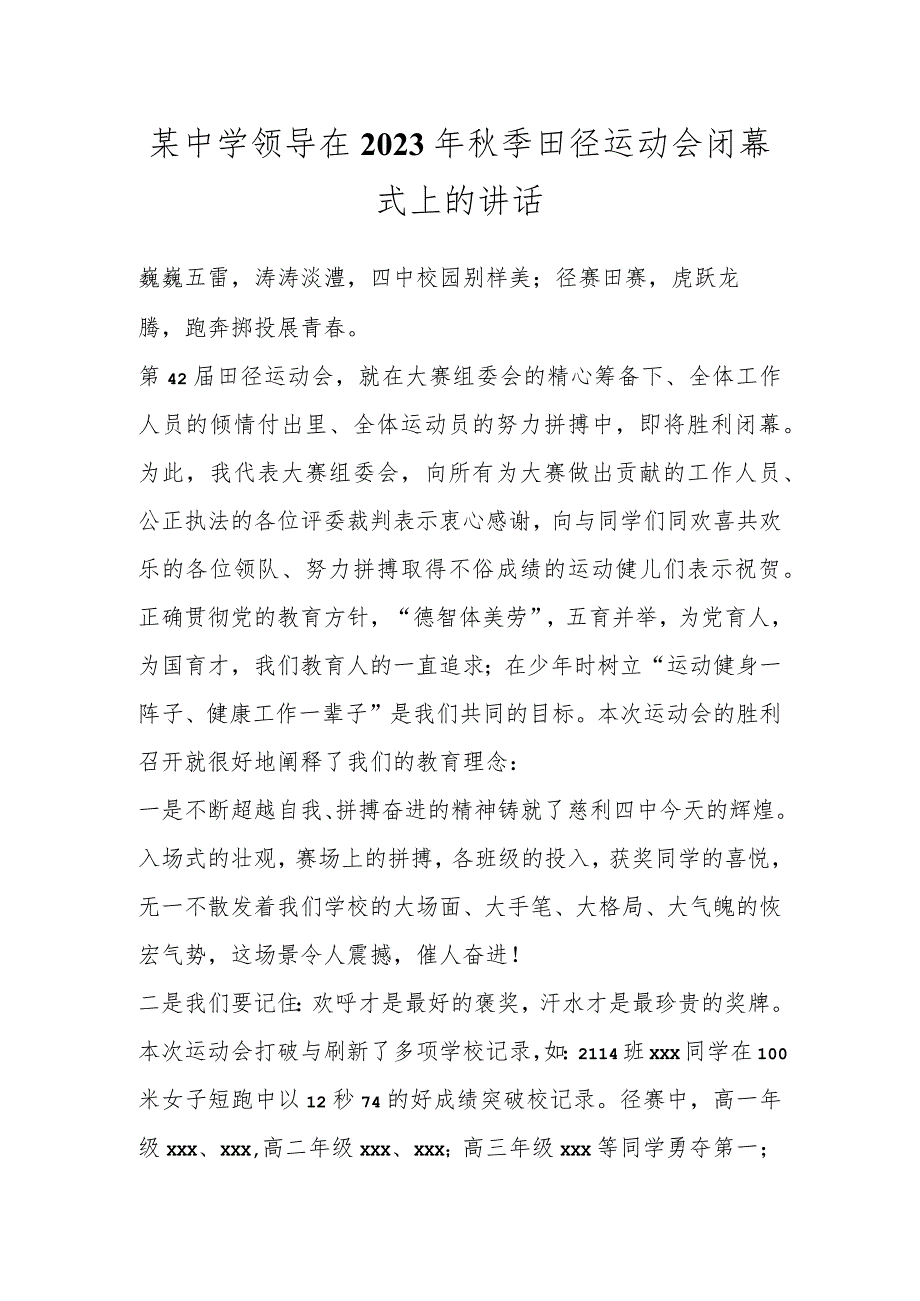 某中学领导在 2023 年秋季田径运动会闭幕
式上的讲话
巍巍五雷，涛涛淡澧，四中校园别样美；径赛田赛，虎跃龙
腾，跑奔掷投展青春。
第 42 届田径运动会，就在大赛组委会的精心筹备下、全体工作
人员的倾情付出里、全体运动员的努力拼搏中，即将胜利闭幕。
为此，我代表大赛组委会，向所有为大赛做出贡献的工作人员、
公正执法的各位评委裁判表示衷心感谢，向与同学们同欢喜共欢
乐的各位领队、努力拼搏取得不俗成绩的运动健儿们表示祝贺。
正确贯彻党的教育方针，“德智体美劳”，五育并举，为党育人，
为国育才，我们教育人的一直追求；在少年时树立“运动健身一
阵子、健康工作一辈子”是我们共同的目标。本次运动会的胜利
召开就很好地阐释了我们的教育理念：
一是不断超越自我、拼搏奋进的精神铸就了慈利四中今天的辉煌。
入场式的壮观，赛场上的拼搏，各班级的投入，获奖同学的喜悦，
无一不散发着我们学校的大场面、大手笔、大格局、大气魄的恢
宏气势，这场景令人震撼，催人奋进！
二是我们要记住：欢呼才是最好的褒奖，汗水才是最珍贵的奖牌。
本次运动会打破与刷新了多项学校记录，如：2114 班 xxx 同学在 100
米女子短跑中以 12 秒 74 的好成绩突破校记录。径赛中，高一年
级 xxx、xxx,高二年级 xxx、xxx；高三年级 xxx 等同学勇夺第一；